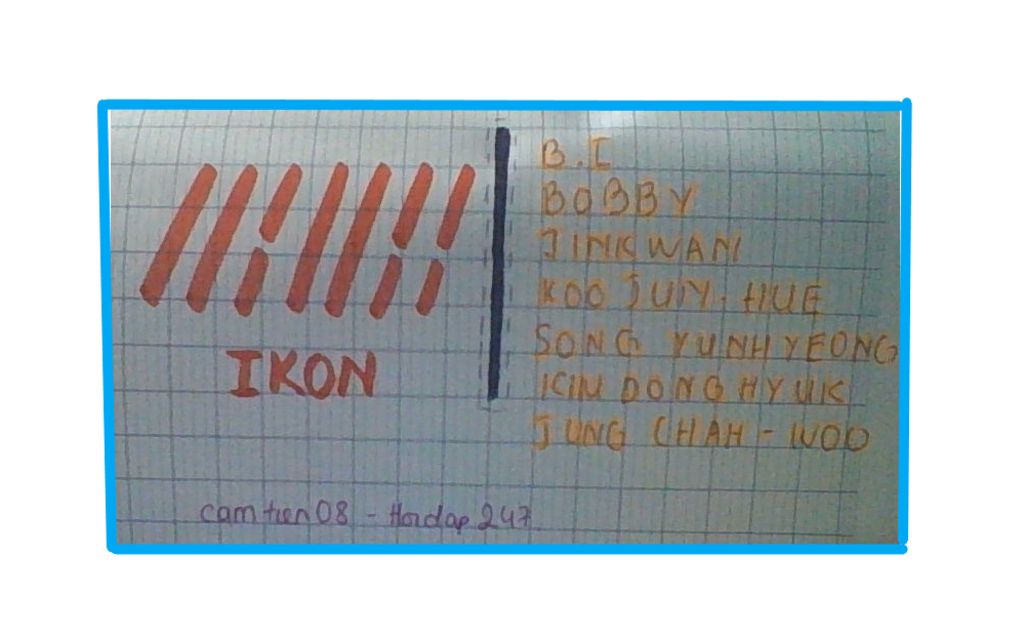 IKON
B.I
BOBBY
JINKWAN
KOO JUN-HUE
SONG YUNHYEONG
KIM DONGHYUK
JUNG CHAH-WOO
camtien08 - Hoidap247